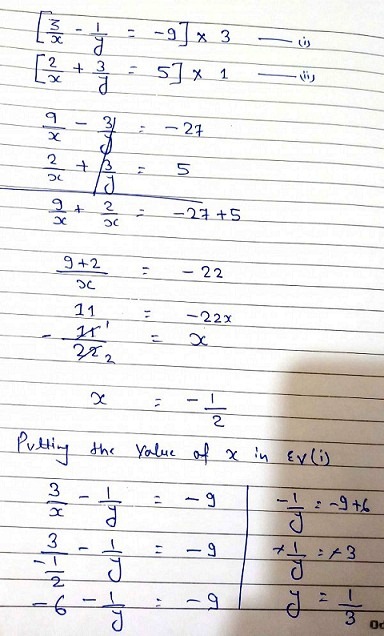 [3/x - 1/y = -9] × 3 — (i)
[2/x + 3/y = 5] × 1 — (ii)
9/x - 3/y = -27
2/x + 3/y = 5
9/x + 2/x = -27+5
9+2/x = -22
11 = -22x
- 11 1/22 2 = x
x = -1/2
Putting the value of x in Ev(i)
3/x - 1/y = -9
3/-1/2 - 1/y = -9
-6 - 1/y = -9
-1/y = -9+6
+1/y = +3
y = 1/3